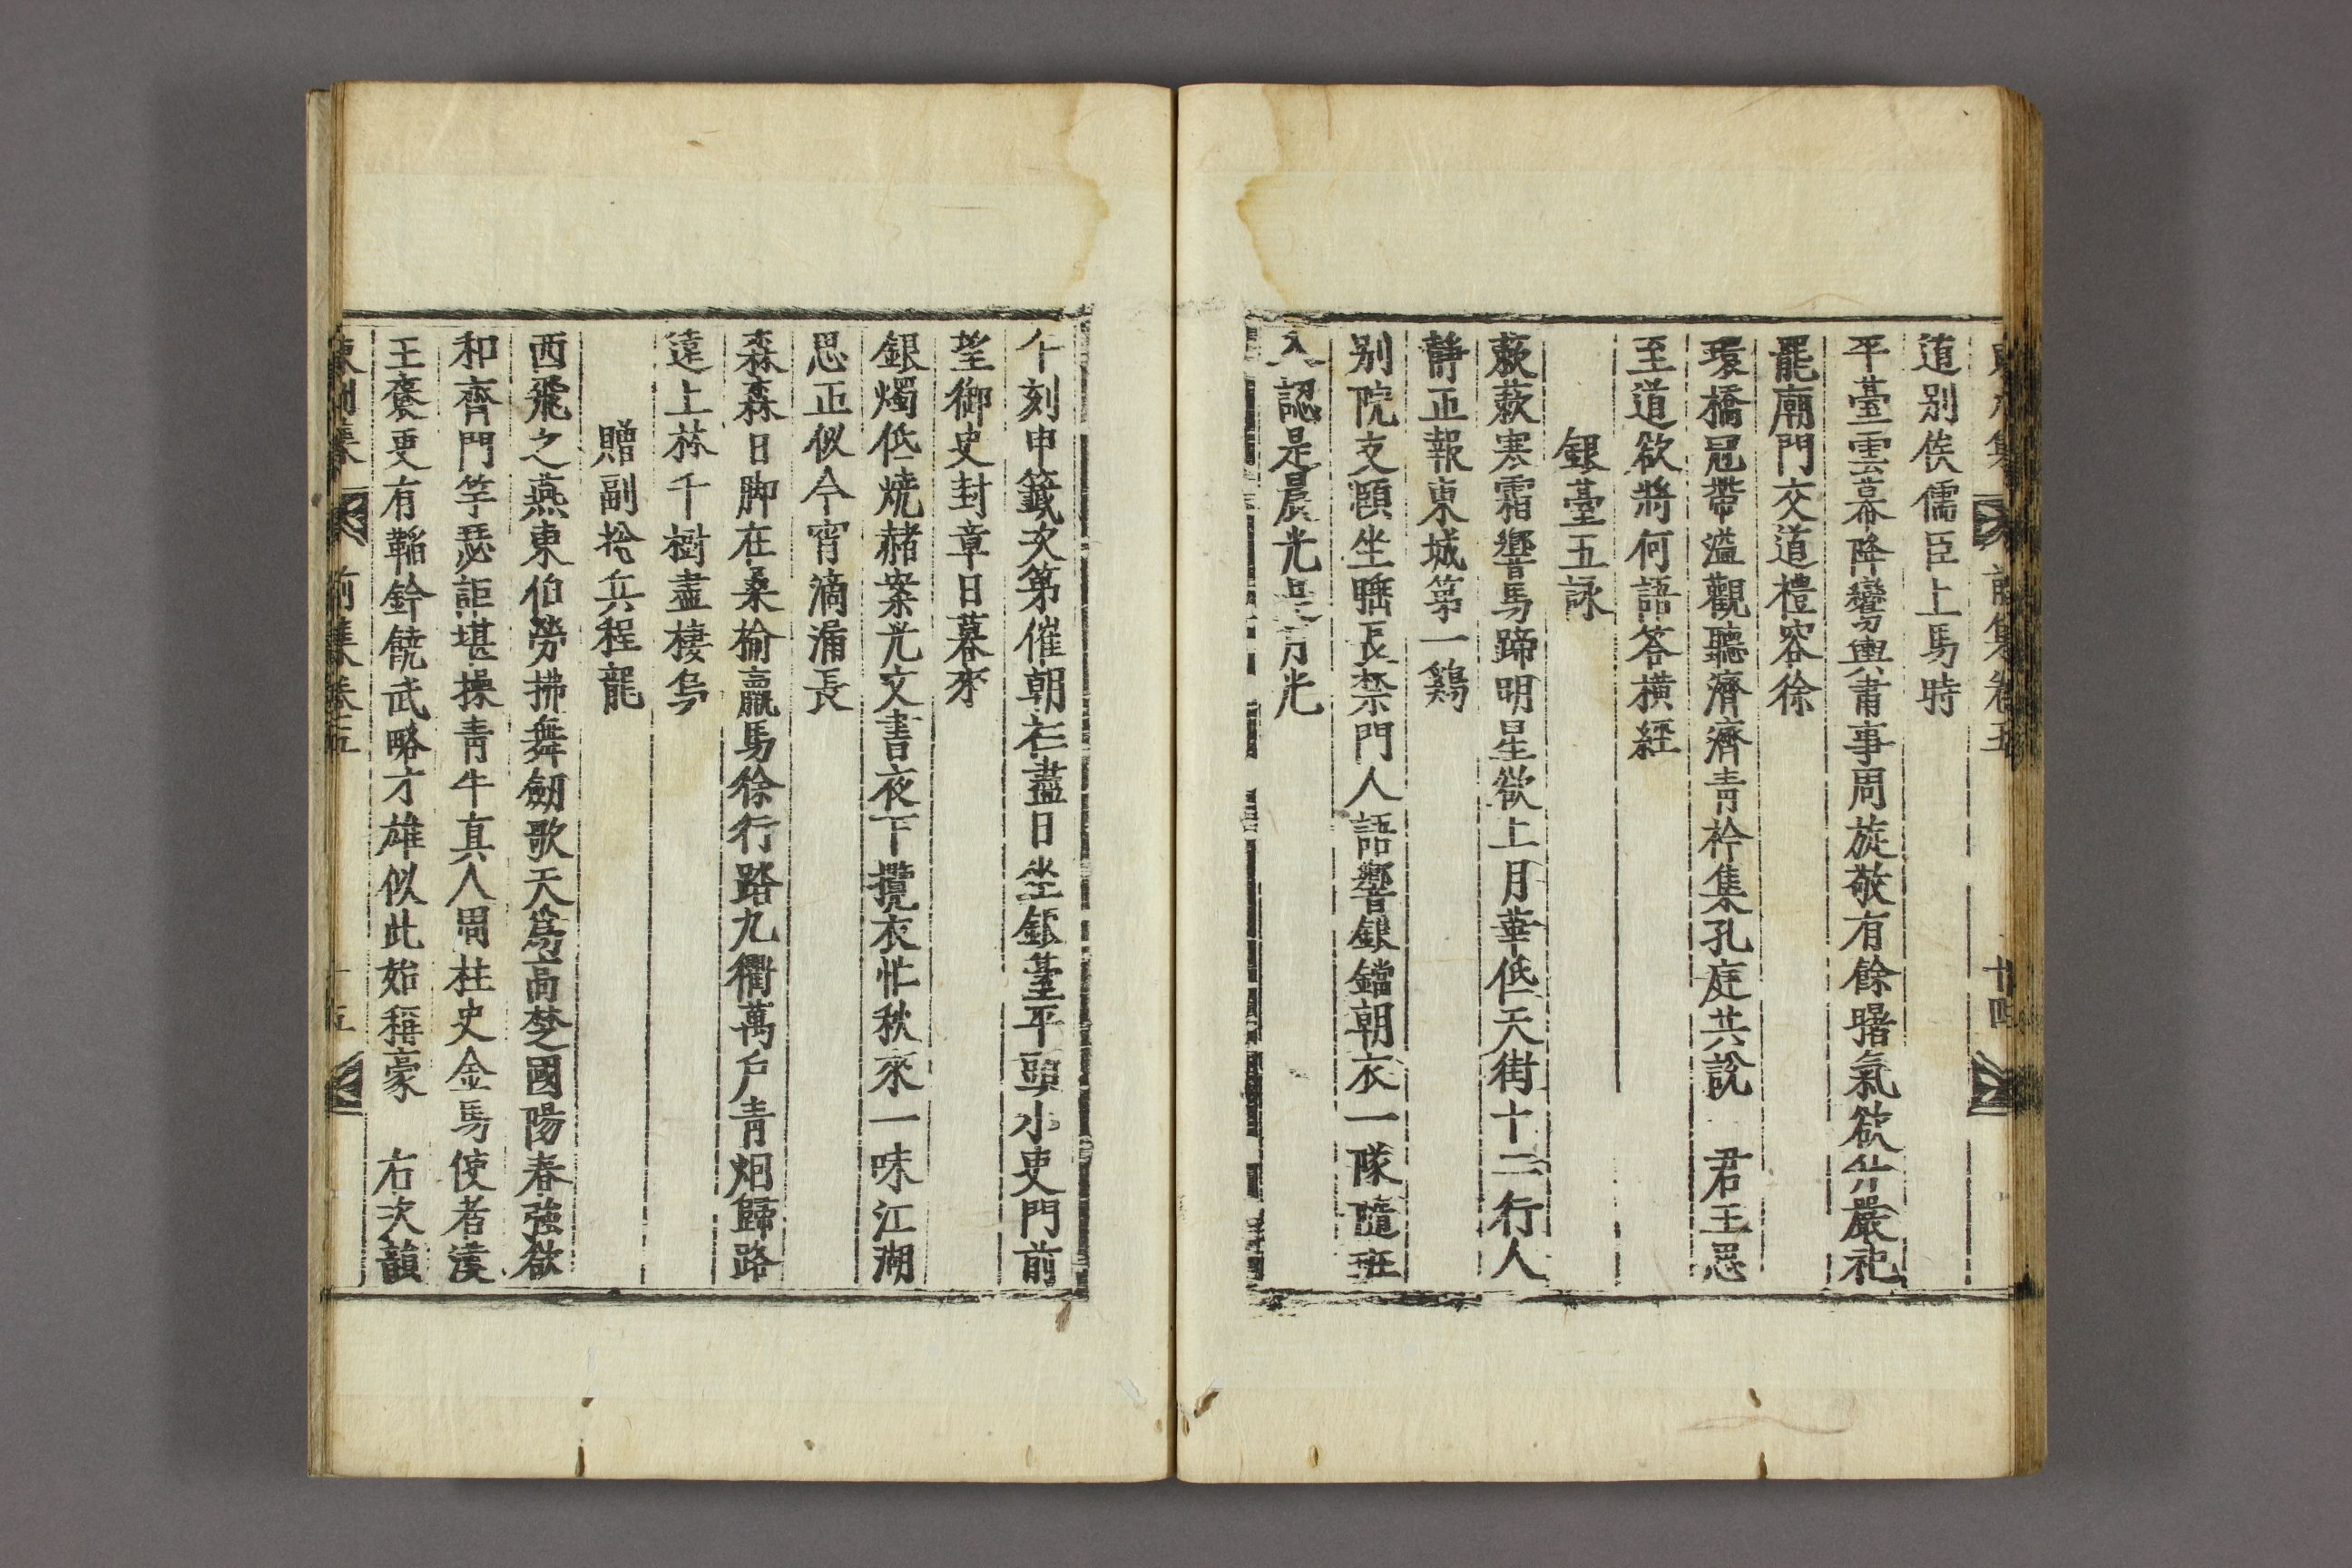 東州集 前集卷五 十四
道別俟儒臣上馬時
平臺雲幕降鸞輿肅事周旋敬有餘曙氣欲分嚴祀
罷廟門交道禮容徐
環橋冠帶溢觀聽濟濟青衿集孔庭共說 君王思
至道欲將何語答橫經
銀臺五詠
蔌蔌寒霜響馬蹄明星欲上月華低天街十二行人
靜正報東城第一鷄
別院支頤坐睡長禁門人語響銀鐺朝衣一隊隨班
入認是晨光是月光
午刻申籤次第催朝衫盡日坐銀臺平頭小吏門前
望御史封章日暮來
銀燭低燒赭案光文書夜下攬衣忙秋來一味江湖
思正似今宵滴漏長
森森日脚在桑榆羸馬徐行踏九衢萬戶青烟歸路
遠上林千樹盡棲烏
贈副摠兵程龍
西飛之燕東伯勞拂舞劒歌天爲高楚國陽春強欲
和齊門竽瑟詎堪操青牛真人周柱史金馬使者漢
王褒更有韜鈐饒武略才雄似此始稱豪 右次韻
東州集 前集卷五 十五